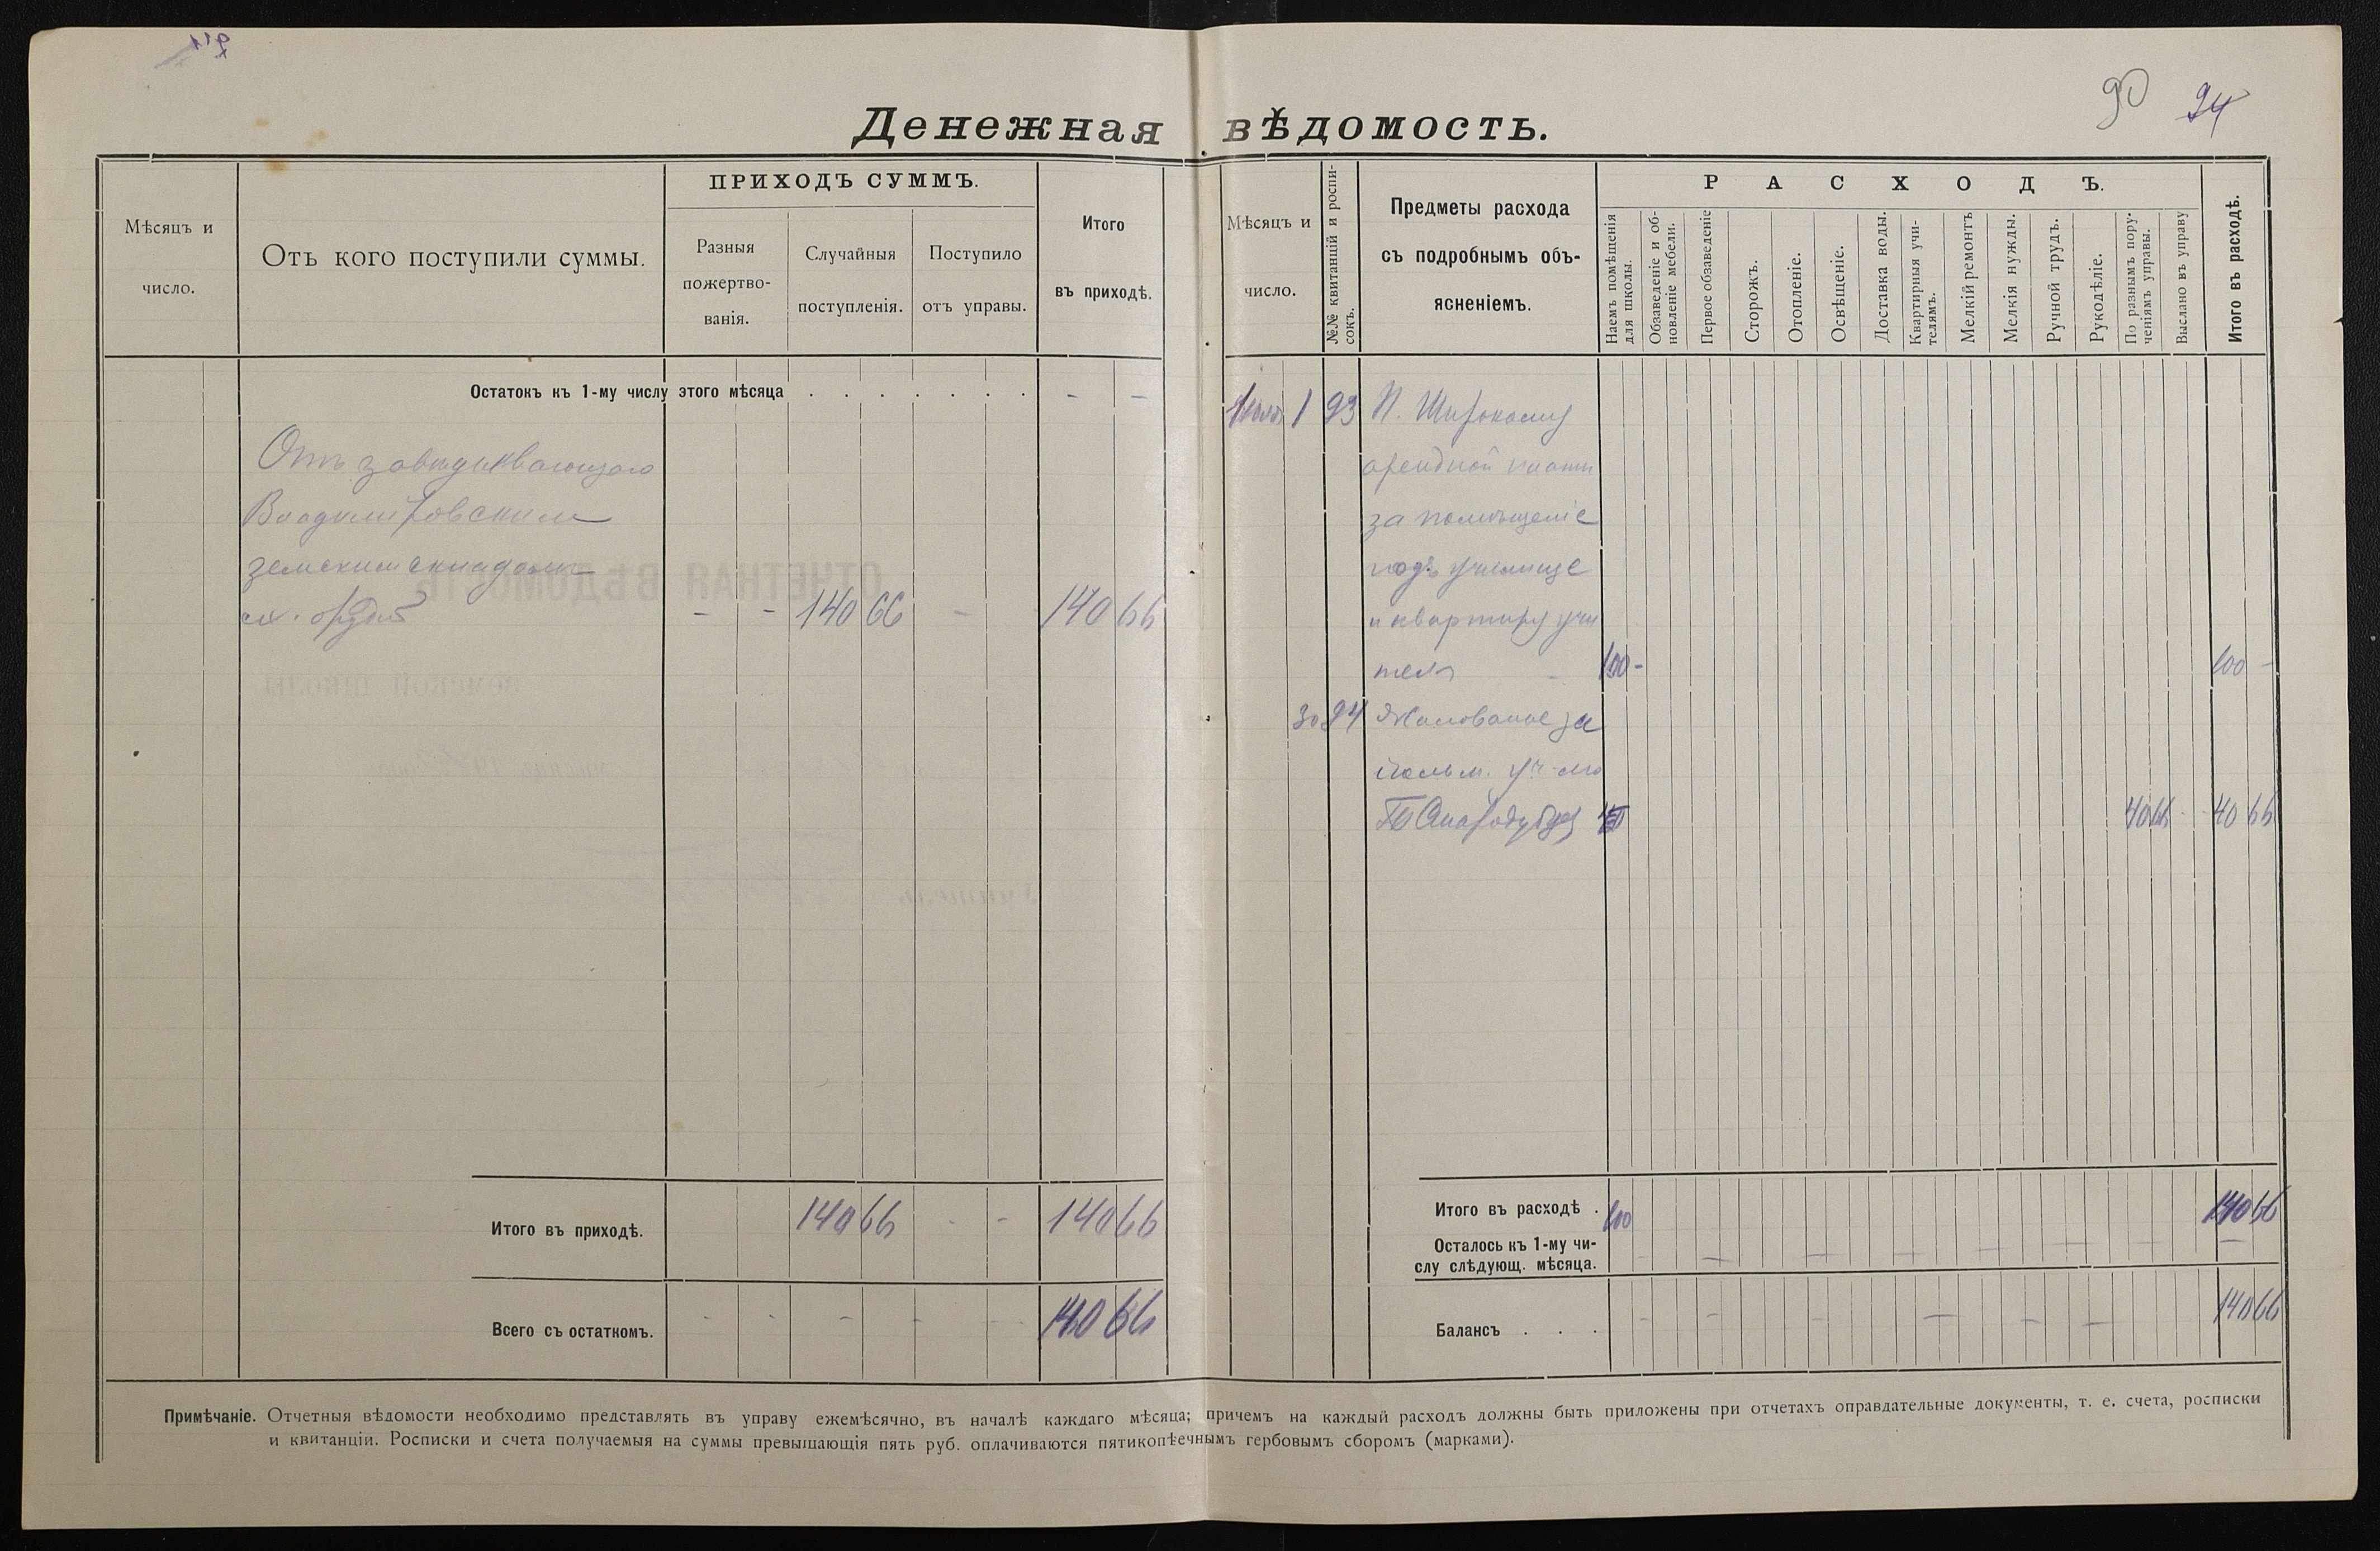 90 94
Денежная вѣдомость.
Мѣсяцъ и
число.
Отъ кого поступили суммы.
ПРИХОДЪ СУММЪ.
Разныя
пожертво-
ванія.
Случайныя
поступленія.
Поступило
отъ управы.
Итого
въ приходѣ.
Остатокъ къ 1-му числу этого мѣсяца . . . . . . . - -
Отъ завѣдывающаго
Владимировскимъ
земскимъ складомъ
с.х. орудій - - 140 66 - 140 66
Итого въ приходѣ. 140 66 - - 140 66
Всего съ остаткомъ. - - - - - 140 66
Мѣсяцъ и
число.
№№ квитанцій и роспи-
сокъ.
Предметы расхода
съ подробнымъ объ-
ясненіемъ.
РАСХОДЪ.
Наемъ помѣщенія
для школы.
Обзаведеніе и об-
новленіе мебели.
Первое обзаведеніе
Сторожъ.
Отопленіе.
Освѣщеніе.
Доставка воды.
Квартирныя учи-
телямъ.
Мелкій ремонтъ
Мелкія нужды.
Ручной трудъ.
Рукодѣліе.
По разнымъ пору-
ченіямъ управы.
Выслано въ управу
Итого въ расходѣ.
1 93 П. Широкому
арендной платы
за помѣщеніе
подъ училище
и квартиру учи
теля - 100 - 100 -
30 94 Жалованье за
іюль м.
40 66 40 66
Итого въ расходѣ . 100 140 66
Осталось къ 1-му чи-
слу слѣдующ. мѣсяца. - - - - - - - -
Балансъ . . . - - - - - - 140 66
Примѣчаніе. Отчетныя вѣдомости необходимо представлять въ управу ежемѣсячно, въ началѣ каждаго мѣсяца; причемъ на каждый расходъ должны быть приложены при отчетахъ оправдательные документы, т. е. счета, росписки
и квитанціи. Росписки и счета получаемыя на суммы превышающія пять руб. оплачиваются пятикопѣечнымъ гербовымъ сборомъ (марками).